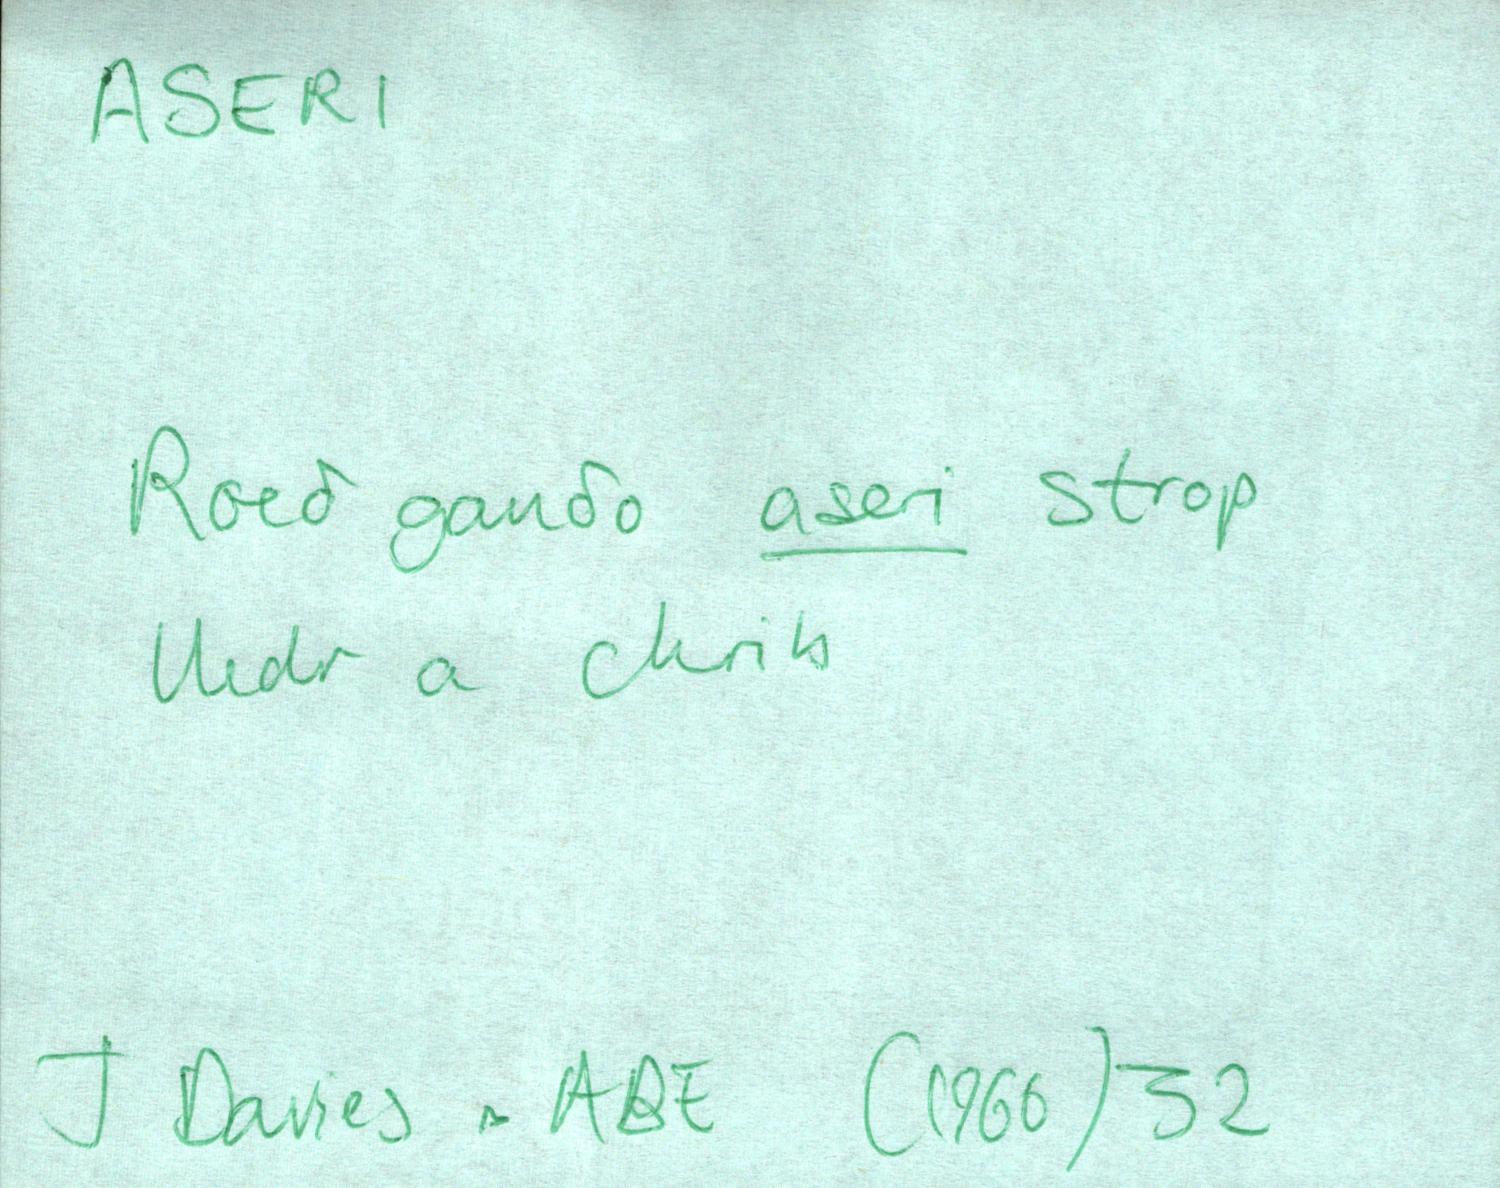 ASERI
Roeð ganðo aseri strop
lledr a chrib
J Davies . ABE (1966) 32